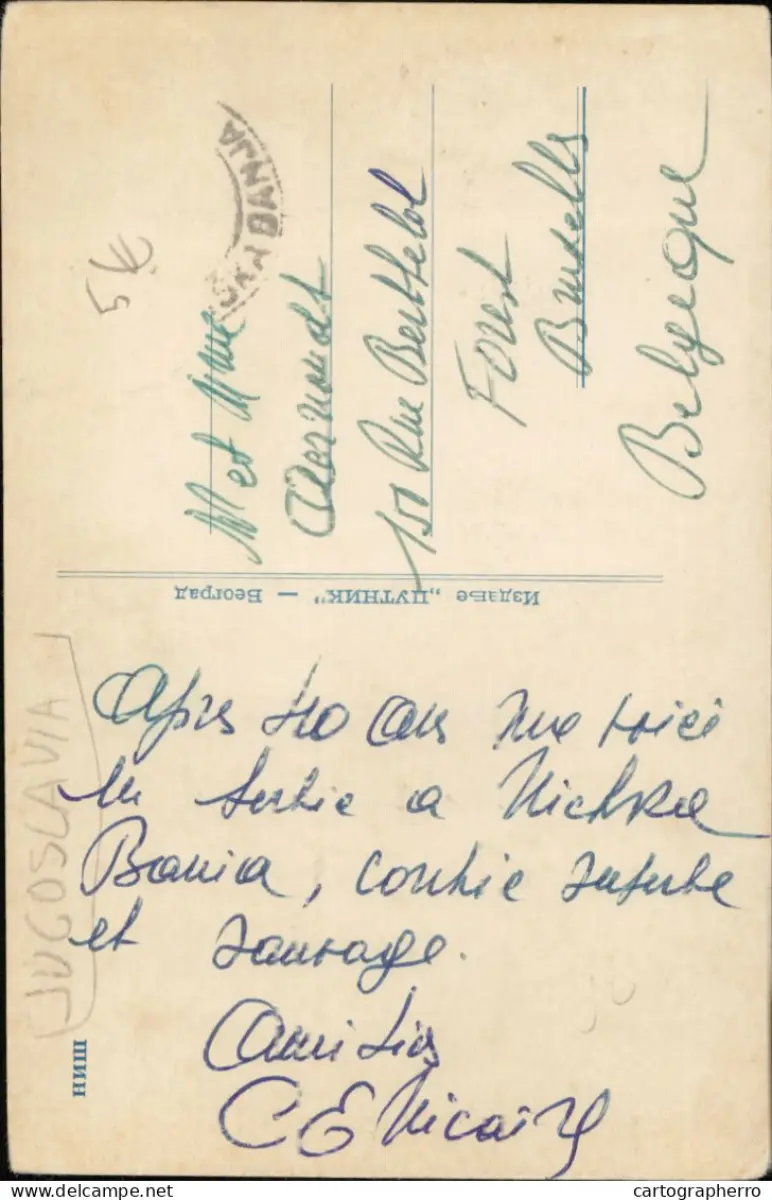 Après 40 ans me voici
en Serbie a Nichka
Bania, contrée superbe
et sauvage.
Amitiés
C E Nicaise
M et Mme
151 Rue Berthelot
Forest
Bruxelles
Belgique
Издање „ПУТНИК" — Београд
НИШ
JUGOSLAVIA
ŠKA BANJA
5€
cartographerro
delcampe.net